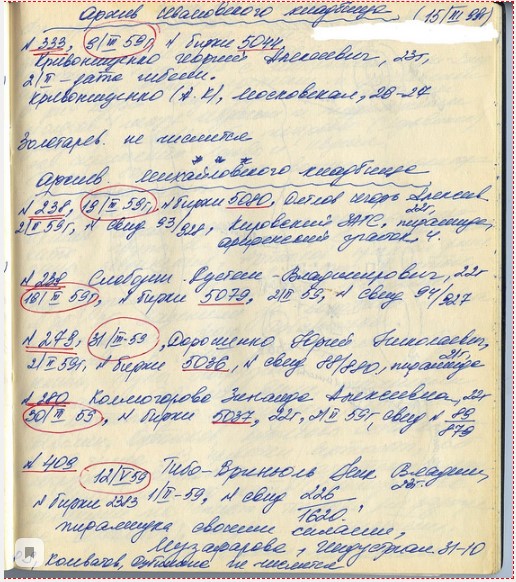 Архив Ивановского кладбища (15/III 99г)
N 533, 9/III 59г, N бирки 5044
Кривонищенко Георгий Алексеевич, 23г,
2/II - дата гибели.
Кривонищенко (А.К), Московская, 20-27
Золотарев. не числится
* * *
Архив Михайловского кладбища
N 238, 19/III 59г, N бирки 5080, Ослов Игорь Алексеев
22г,
2/II 59г, N свид 93/ Кировский ЗАГС, пирамида,
участок 4.
N 239 Слободин Рустем Владимирович, 22г
18/III 59г, N бирки 5079, 2/II 59, N свид 94/927
N 279, 31/III-59, Дорошенко Юрий Николаевич,
21г.
2/II 59г, N бирки 5036, N свид 88/880, пирамида
N 280 Колмогорова Зинаида Алексеевна, 22г
30/III 59, N бирки 5037, 22г, 2/II 59г, свид N 89/879
N 409
12/V 59 Тибо-Бриньоль Ник Владим,
23г.
N бирки 2313 1/II-59, N свид 226
1620.
пирамидка своими силами,
Музафарова, Индустрии 31-10
Колеватов, Дубинина не числится